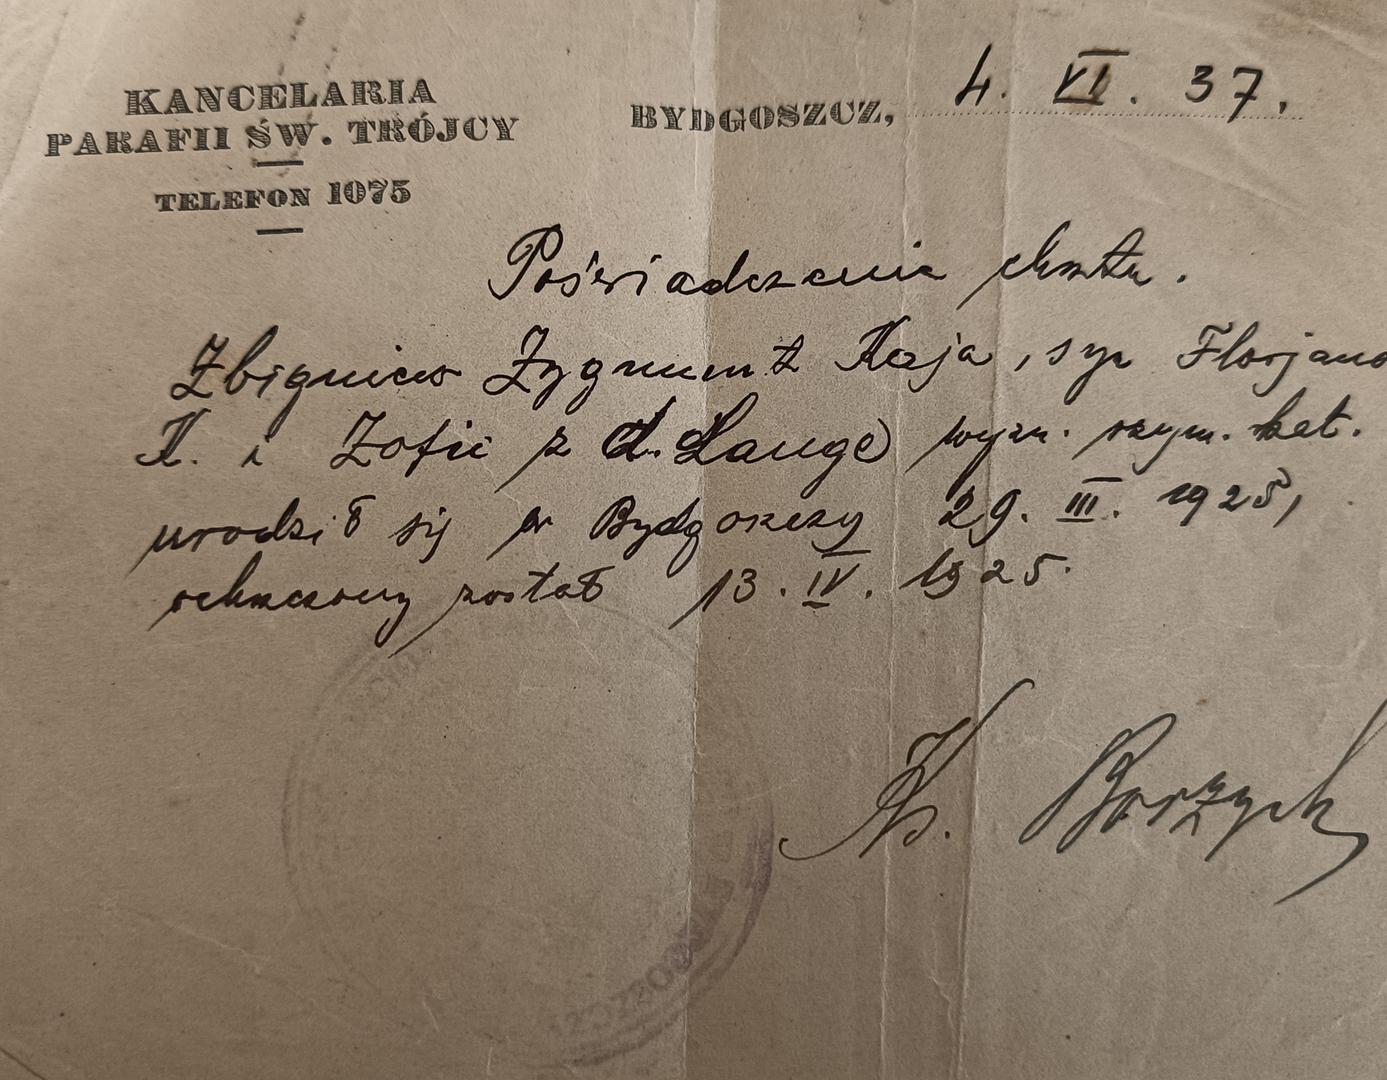 KANCELARIA
PARAFII ŚW. TRÓJCY
TELEFON 1075
BYDGOSZCZ, 4. VI. 37.
Poświadczenie chrztu.
Zbigniew Zygmunt Kaja, syn Florjana
K. i Zofii z d. Lange wyzn. rzym. kat.
urodził się w Bydgoszczy 29. III. 1925,
ochrzczony został 13. IV. 1925.
Ks. Borzych